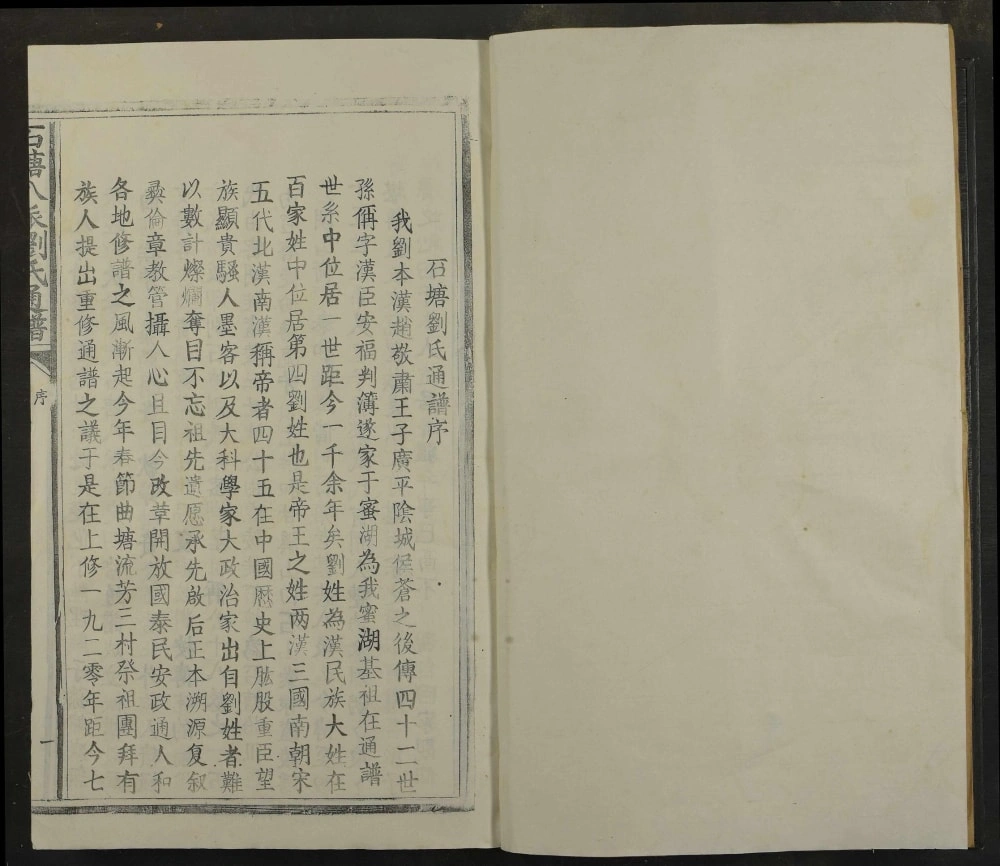 石塘劉氏通譜序
我劉本漢趙敬肅王子廣平陰城侯蒼之後傳四十二世
孫偁字漢臣安福判簿遂家于蜜湖為我蜜湖基祖在通譜
世系中位居一世距今一千余年矣劉姓為漢民族大姓在
百家姓中位居第四劉姓也是帝王之姓两漢三國南朝宋
五代北漢南漢稱帝者四十五在中國歷史上肱股重臣望
族顯貴騷人墨客以及大科學家大政治家出自劉姓者難
以數計燦爛奪目不忘祖先遺愿承先啟后正本溯源复叙
彝倫章教管攝人心且目今政革開放國泰民安政通人和
各地修譜之風漸起今年春節曲塘流芳三村祭祖團拜有
族人提出重修通譜之議于是在上修一九二零年距今七
石塘八派劉氏通譜
序
一